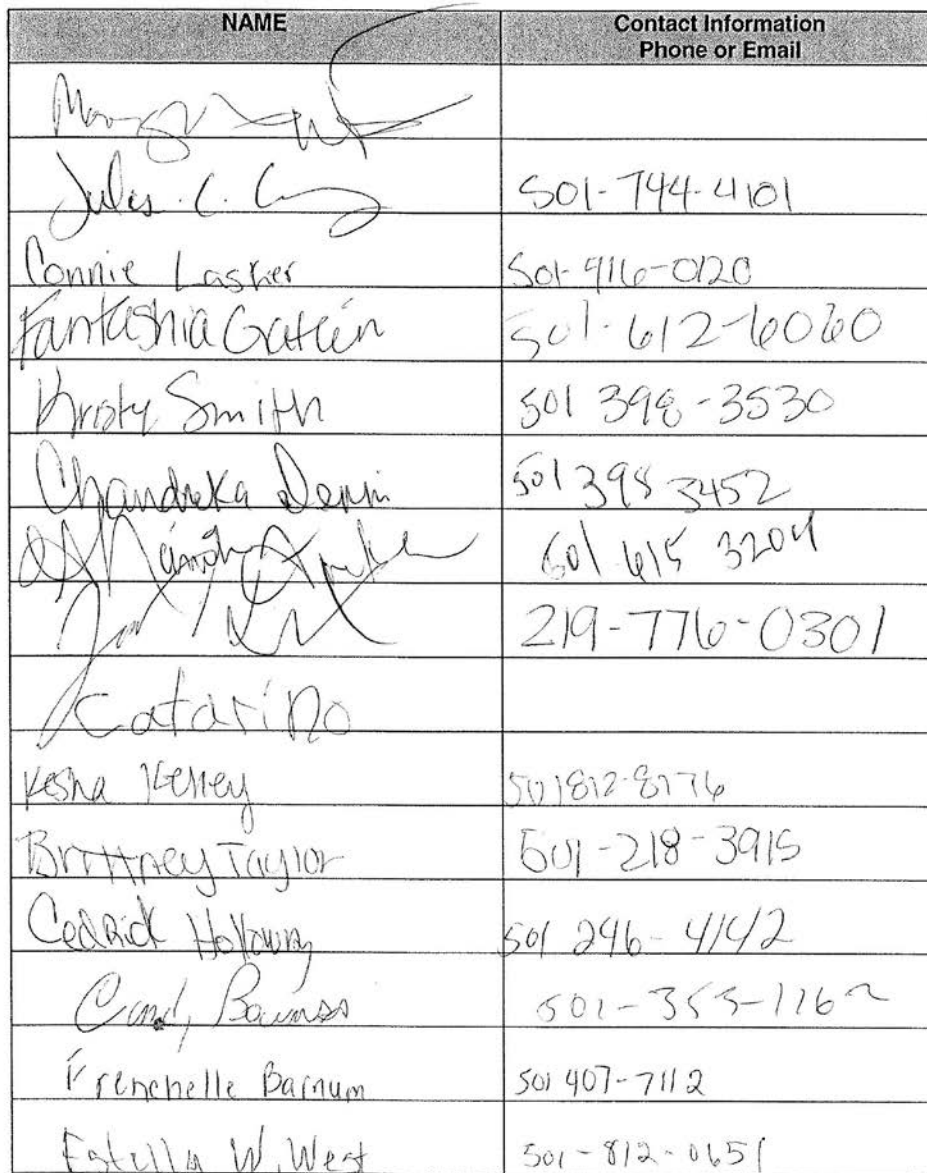 NAME Contact Information
Phone or Email
Jules. C. 501-744-4101
Connie Lasker 501-916-0120
Fantashia Gatlin 501-612-6060
Kristy Smith 501 398-3530
Chandreka 501 398 3452
501 615 3204
219-776-0301
Catarino
Kesha Kelley 501812-8776
Brittney Taylor 501-218-3915
Cedrick Holloway 501 296-4142
501-353-1162
Frenchelle Barnum 501 407-7112
Estella W. West 501-812-0651